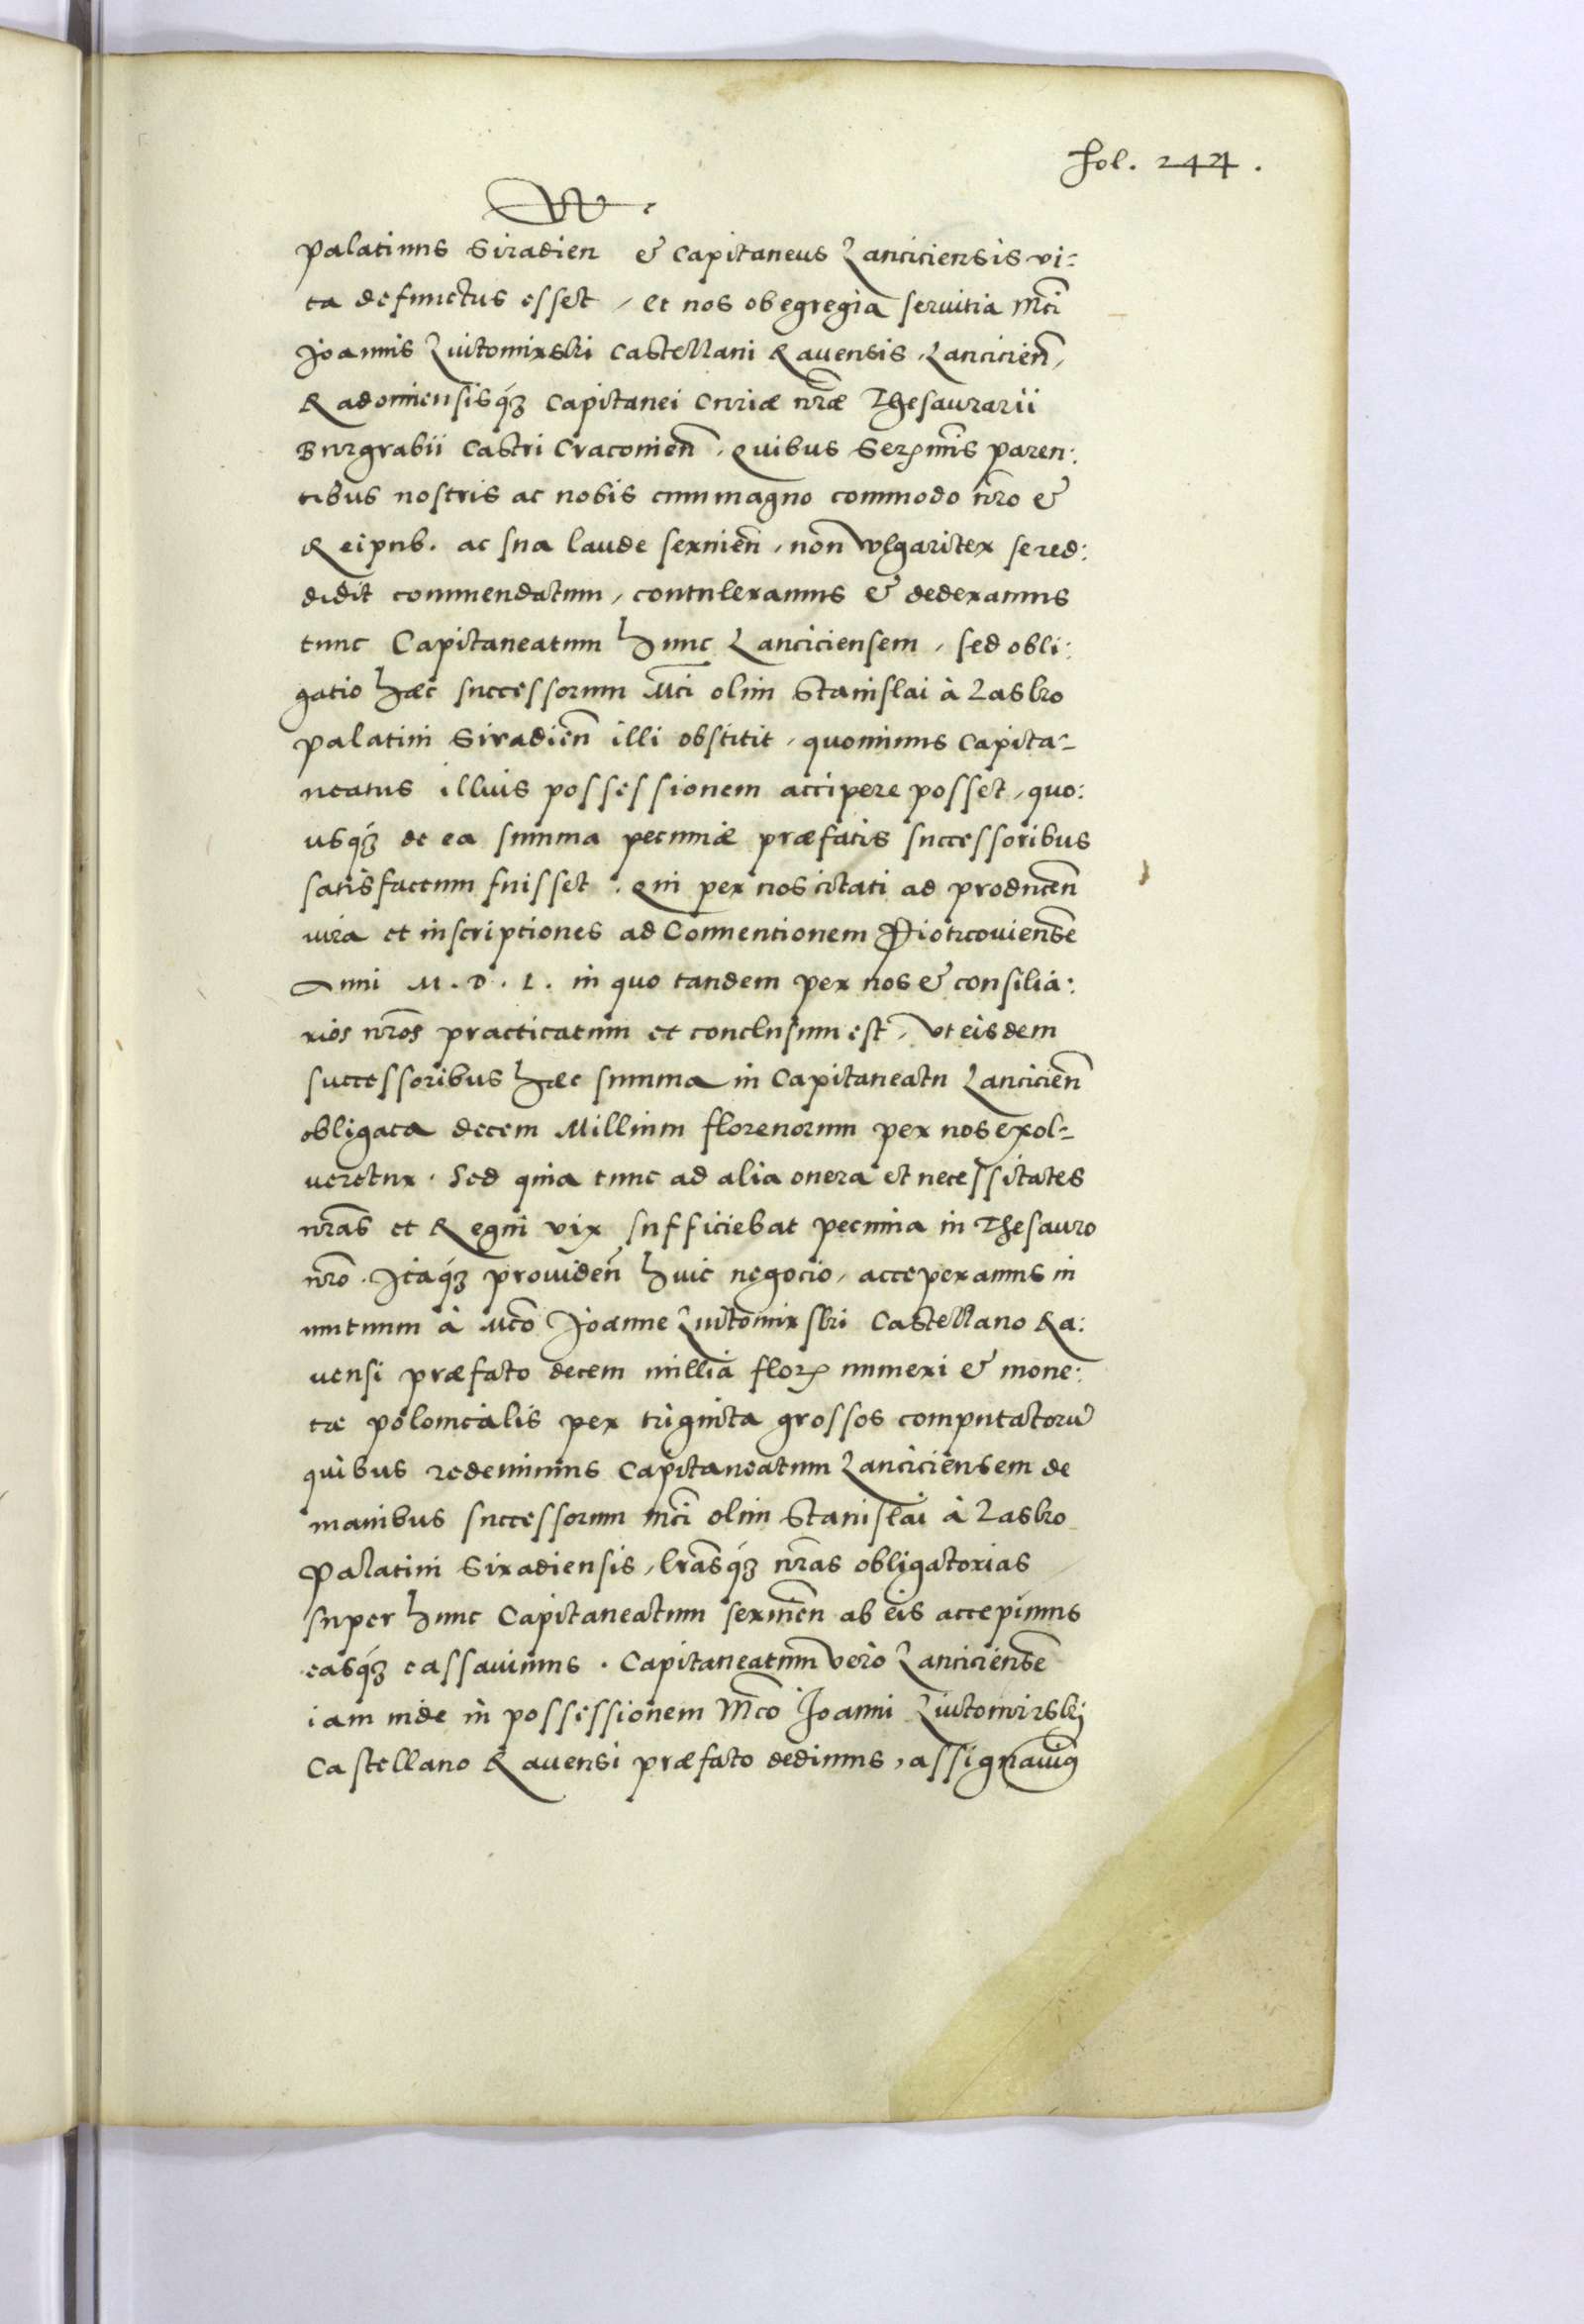 fol. 244.
W.
Palatinus Siradien & Capitaneus Lanciciensis vi:
ta defunctus esset, et nos ob egregia servitia Mci
Joannis Lutomirski Castellani Ravensis, Lancicien̄,
Radomiensisq́ꝫ Capitanei Curiæ nr̄æ Thesaurarii
Burgrabii Castri Cracovien̄, Quibus Serꝫmis paren:
tibus nostris ac nobis cum magno commodo nr̄o &
Reipub. ac sua laude servien̄, non vulgariter se red:
didit commendatum, contuleramus & dederamus
tunc Capitaneatum hunc Lanciciensem, sed obli:
gatio hæc successorum Mci olim Stanislai à Lasko
Palatini Siradien̄ illi obstitit, quominus Capita-
neatus illius possessionem accipere posset, quo:
usq́ꝫ de ea summa pecuniæ præfatis successoribus
satisfactum fuisset. Qui per nos citati ad producen̄
iura et inscriptiones ad Conventionem Piotrcoviensē
Anni M. D. L. in quo tandem per nos & consilia:
rios nr̄os practicatum et conclusum est, vt eisdem
successoribus hæc summa in Capitaneatu Lancicien̄
obligata decem Millium florenorum per nos exol-
veretur. Sed quia tunc ad alia onera et necessitates
nr̄as et Regni vix sufficiebat pecunia in Thesauro
nr̄o. Itaq́ꝫ providen̄ huic negocio, acceperamus in
mutuum à Mco Joanne Lutomirski Castellano Ra:
vensi præfato decem millia florꝫ numeri & mone:
tæ polonicalis per triginta grossos computatorū
quibus redemimus Capitaneatum Lanciciensem de
manibus successorum Mci olim Stanislai à Lasko
Palatini Siradiensis, lr̄asq́ꝫ nr̄as obligatorias
super hunc Capitaneatum servien̄ ab eis accepimus
easq́ꝫ cassavimus. Capitaneatum vero Lanciciensē
iam inde in possessionem Mco Joanni Lutomirskj
Castellano Ravensi præfato dedimus, assignavimꝰ